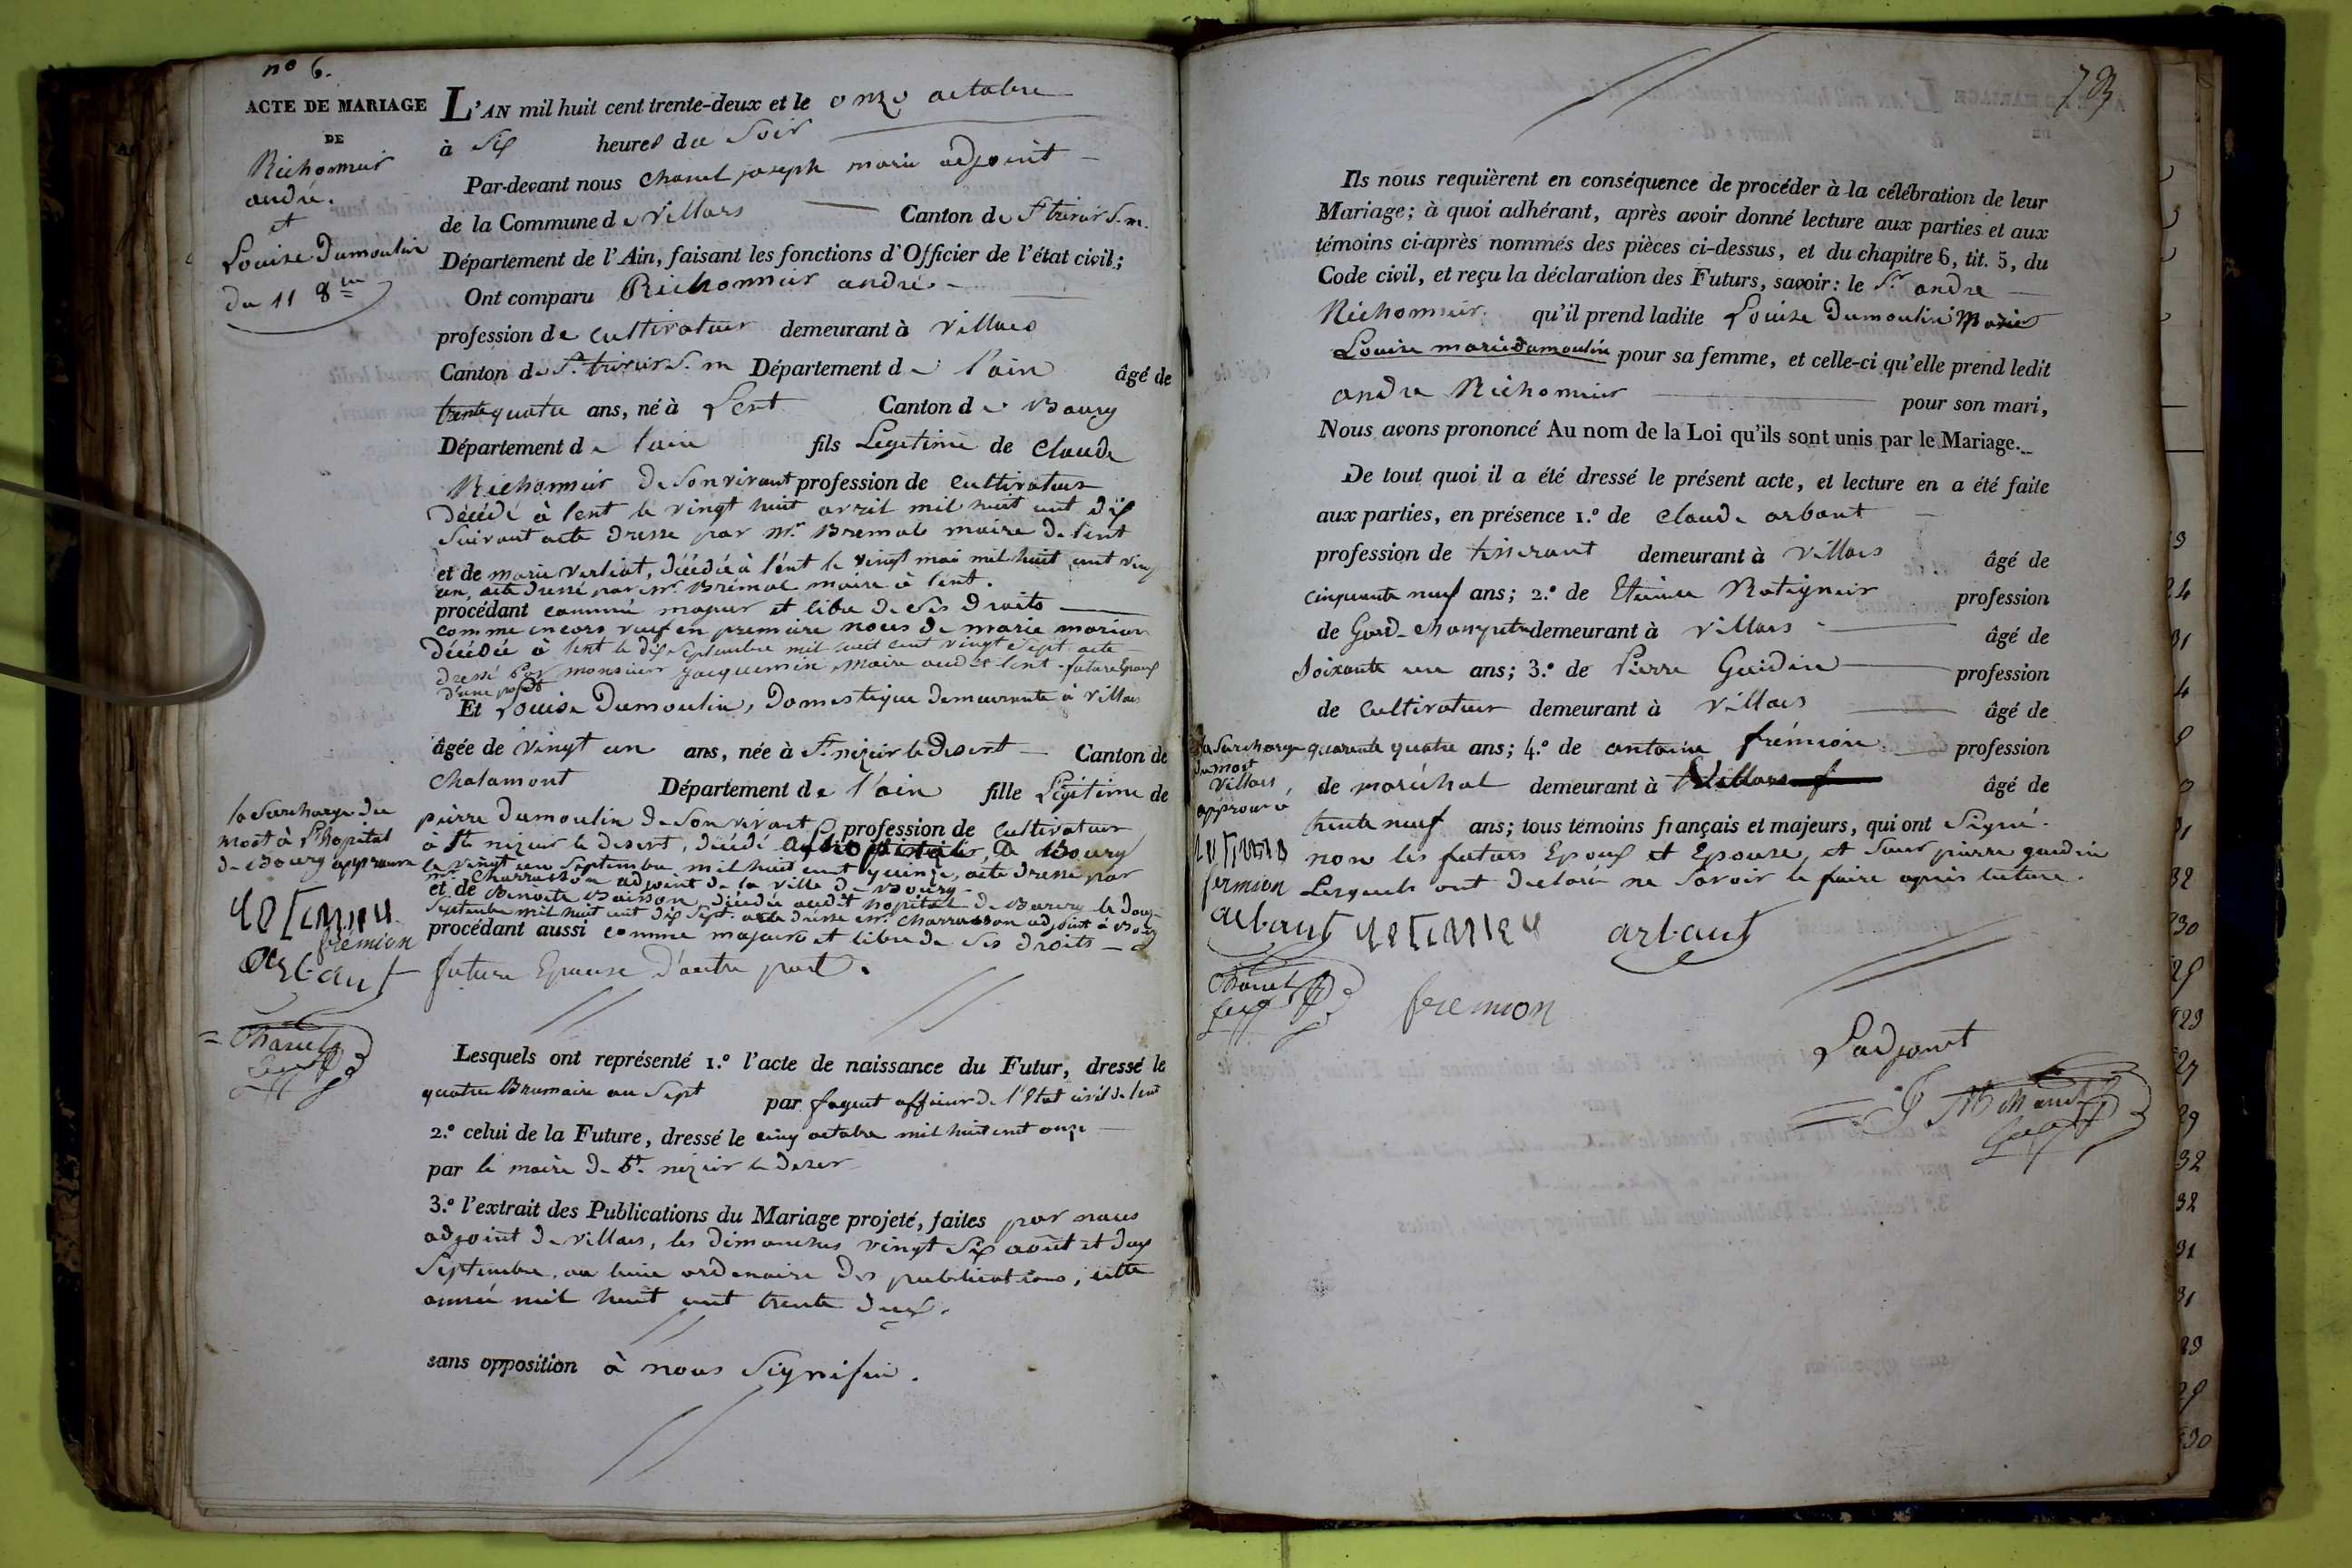 n° 6.
ACTE DE MARIAGE
DE
Richonnier
andré.
et
Louise Dumoulin
du 11 8bre
L'AN mil huit cent trente-deux et le onze octobre
à Six heures du Soir
Par-devant nous Chanel joseph marie adjoint
de la Commune de Villars Canton de St trivier S. m.
Département de l'Ain, faisant les fonctions d'Officier de l'état civil;
Ont comparu Richonnier andré
profession de cultivateur demeurant à Villars
Canton de St. trivier S. m Département de l'ain âgé de
trente quatre ans, né à Lent Canton de Bourg
Département de l'ain fils Legitime de Claude
Richonnier De Son vivant profession de cultivateur
Décédé à lent le vingt huit avril mil huit cent Dix
Suivant acte Dressé par Mr. Bremal maire de lent
et de marie Verliat, Décédée à lent le vingt mai mil huit cent vingt
un, acte Dressé par Mr. Brémal maire à lent.
procédant comme majeur et libre de Ses Droits
comme encore veuf en premiere noces de marie morian
Décédée à lent le dix Septembre mil huit cent vingt Sept acte
dressé par monsieur jacquemin Maire audit lent. futur Epoux
D'une part
Et Louise Dumoulin, Domestique Demeurante à Villars
âgée de vingt un ans, née à St. nizier le Desert Canton de
Chalamont Département de l'ain fille Légitime de
pierre Dumoulin De Son vivant profession de Cultivateur
à St. nizier le Desert, Décédé à l'hopital de Bourg
le vingt un Septembre mil huit cent quinze, acte Dressé par
Mr. Charrasson adjoint de la ville de Bourg.
et de Benoite Buisson, Décédée audit hopital de Bourg le Douze
Septembre mil huit cent dix Sept. acte dressé Mr. Charrasson adjoint à Bourg
procédant aussi comme majeure et libre de Ses Droits
future Epouse D'autre part.
la Surcharge du
mot à l'hopital
de Bourg approuvé
frémion
Arbant
Chanel
Lesquels ont représenté 1.° l'acte de naissance du Futur, dressé le
quatre Brumaire an Sept par fagent officier de l'état civil de lent
2.° celui de la Future, dressé le cinq octobre mil huit cent onze
par le maire de St. nizier le Deser
3.° l'extrait des Publications du Mariage projeté, faites par nous
adjoint de Villars, les dimanches vingt Six août et deux
Septembre, au lieu ordenaire Des publications, cette
année mil huit cent trente deux.
sans opposition à nous Signifiée.
Ils nous requièrent en conséquence de procéder à la célébration de leur
Mariage; à quoi adhérant, après avoir donné lecture aux parties et aux
témoins ci-après nommés des pièces ci-dessus, et du chapitre 6, tit. 5, du
Code civil, et reçu la déclaration des Futurs, savoir: le Sr. andre
Richonnier qu'il prend ladite Louise Dumoulin Marie
Louise marie Dumoulin pour sa femme, et celle-ci qu'elle prend ledit
andre Richonnier pour son mari,
Nous avons prononcé Au nom de la Loi qu'ils sont unis par le Mariage.
De tout quoi il a été dressé le présent acte, et lecture en a été faite
aux parties, en présence 1.° de Claude arbant
profession de tisserant demeurant à Villars âgé de
cinquante neuf ans; 2.° de Etienne Ratignier profession
de Gard-champetre demeurant à Villars âgé de
Soixante un ans; 3.° de Pierre Guidin profession
de cultivateur demeurant à Villars âgé de
quarente quatre ans; 4.° de antoine frémion profession
de maréchal demeurant à Villars âgé de
trente neuf ans; tous témoins français et majeurs, qui ont Signé.
non les futurs Epoux et Epouse, et Sieur pierre guidin
Lesquels ont déclaré ne Savoir le faire après lecture.
la Surcharge
du mot
Villars
approuvé
fermion
arbant
Chanel
arbant
fremion
L'adjoint
J M Chanel